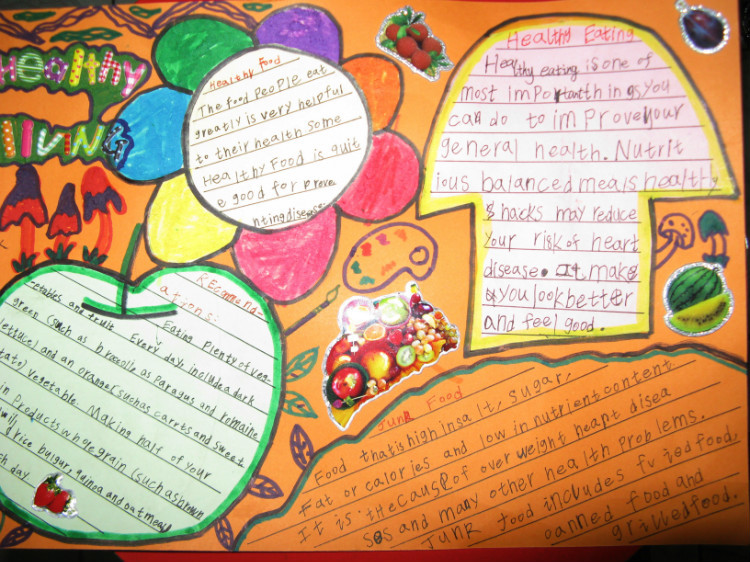 Healthy
living
Healthy Food
The food people eat
greatly is very helpful
to their health Some
Healthy Food is quit
e good for preve
nting disease.
Healthy Eating
Healthy eating is one of
most important things you
can do to improve your
general health. Nutrit
ious balanced meals healthy
shacks may reduce
your risk of heart
disease. It make
s you look better
and feel good.
REcommend-
ations:
Eating plenty of veg-
etables and fruit. Every day, include a dark
green (such as broccolic as Paragus and Romaine
lettuce) and an orange (such as carrts and sweet
tato) vegetable. Making half of your
in products whole grain (such as brown
wild rice bulgur, quinoa and oatmeal
ch day.
Junk Food
Food that is high in salt, sugar,
Fat or calories and low in nutrient conntent
It is the cause of over weight heart disea
ses and many other health problems.
Junk food includes food,
canned food and
grilled food.